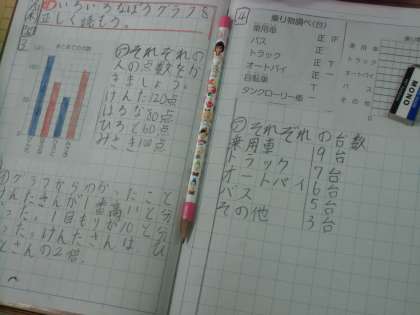 いろいろなぼうグラフを
正しく読もう。
それぞれの
人の点数をか
きましょう。
けんた120点
はるな80点
ひろと60点
みさき110点
グラフからわかったこと
けんたさんが1番高いと分
った。1目もりが10と分
った。けんたさんは ひ
とさんの2倍。
4
乗り物調べ(台)
乗用車 正
バス 正
トラック 正
オートバイ 正一
自転車
タンクローリー 一
乗用車
トラック
オートバイ
バス
その他
MONO
それぞれの台数
乗用車 9台
トラック 7台
オートバイ 6台
バス 5台
その他 3台